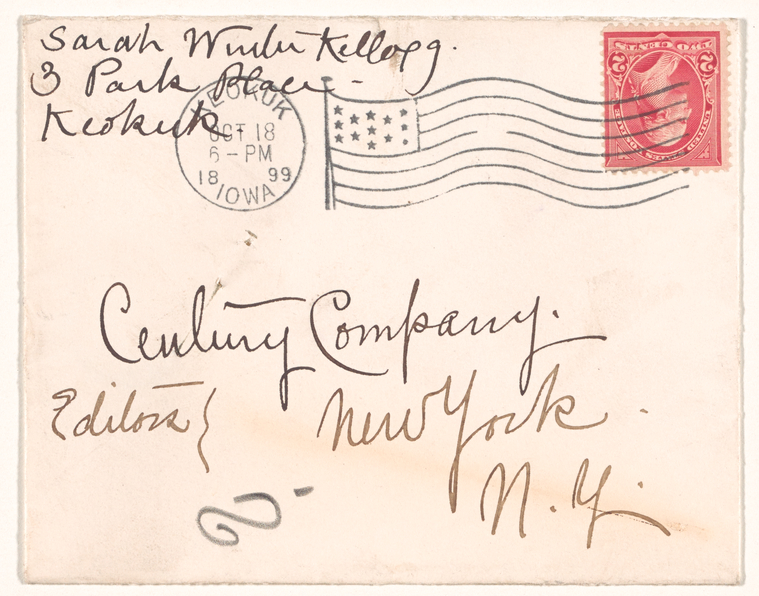 Sarah Winter Kellogg.
3 Park Place -
Keokuk
KEOKUK
OCT 18
6 - PM
18 99
IOWA
2 2
Century Company.
Editors }
New York.
N. Y.
2 -